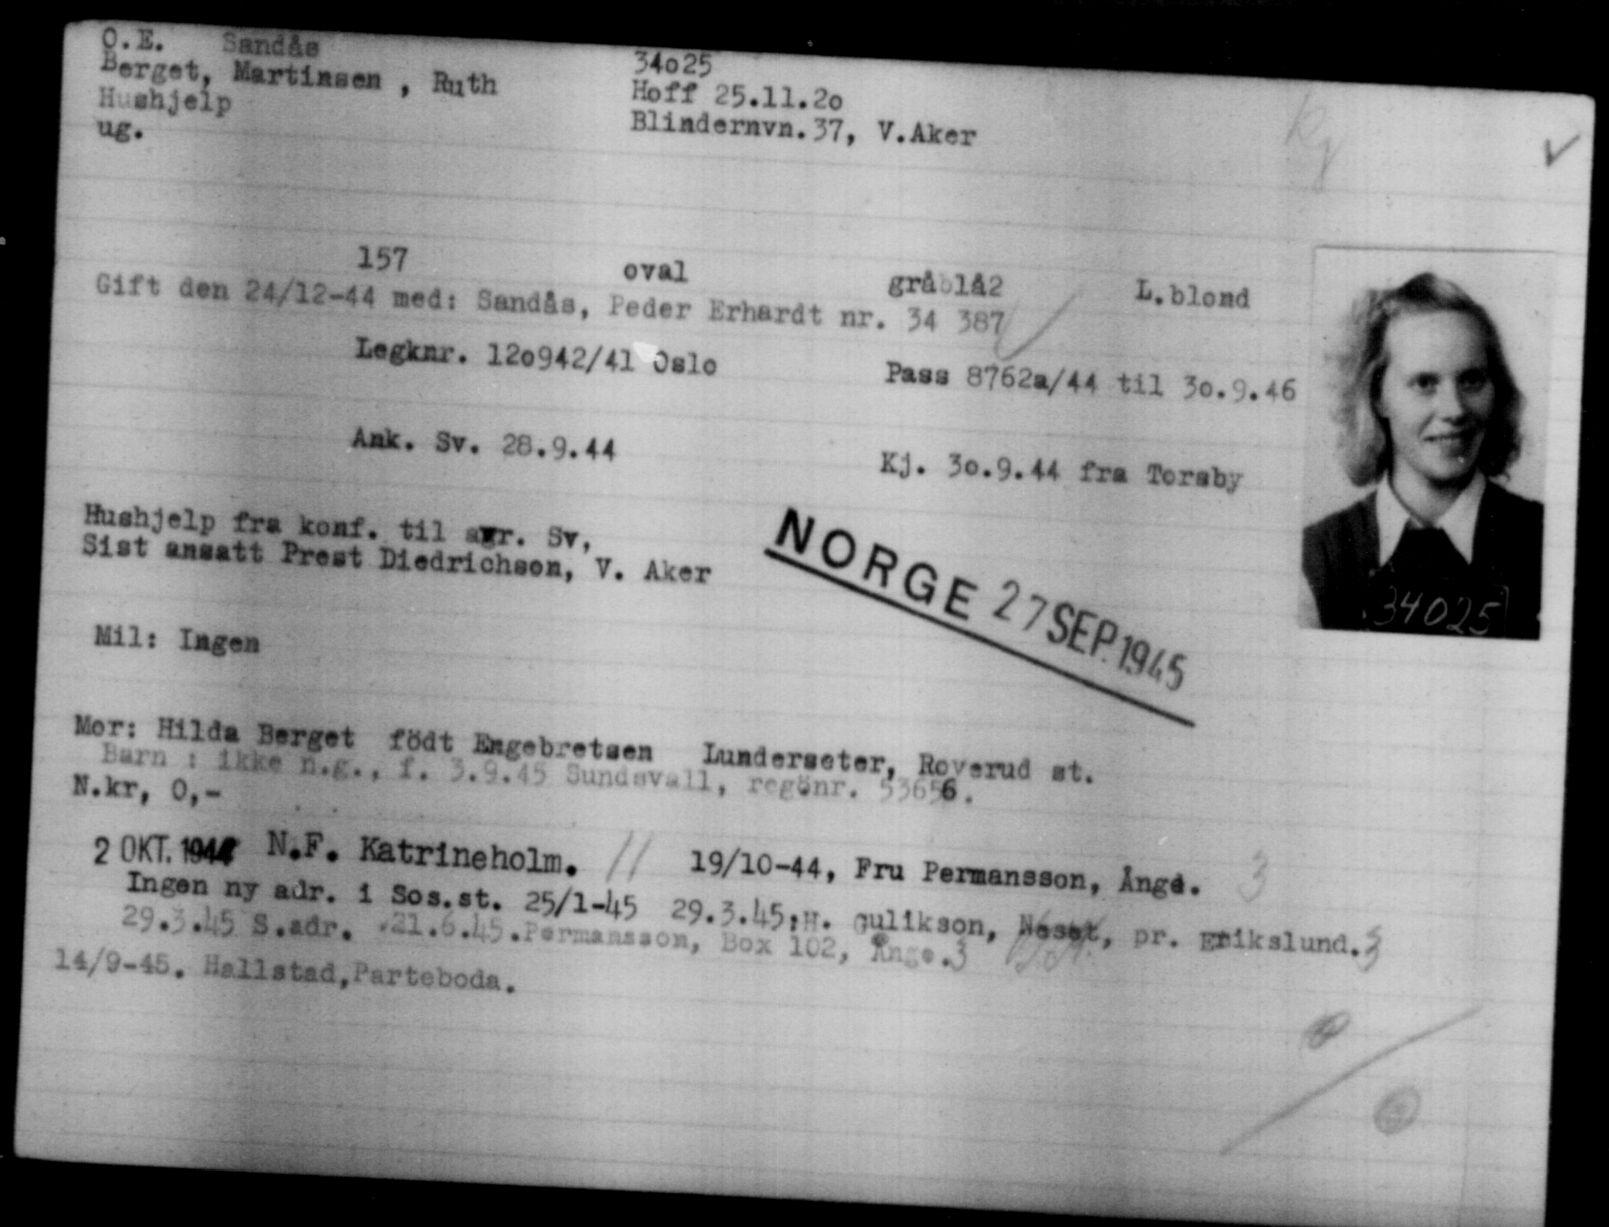 O.E. Sandås
34o25
Berget, Martinsen , Ruth
Hoff 25.11.2o
Hushjelp
Blindernvn.37, V.Aker
ug.
157 oval gråblå2 L.blond
Gift den 24/12-44 med: Sandås, Peder Erhardt nr. 34 387
Legknr. 12o942/41 Oslo Pass 8762a/44 til 3o.9.46
Ank. Sv. 28.9.44 Kj. 3o.9.44 fra Torsby
34025
Hushjelp fra konf. til agr. Sv,
Sist ansatt Prest Diedrichson, V. Aker
NORGE 27 SEP. 1945
Mil: Ingen
Mor: Hilda Berget födt Engebretsen Lunderseter, Roverud st.
Barn : ikke n.g., f. 3.9.45 Sundsvall, regönr. 53656.
N.kr, 0,-
2 OKT. 1944 N.F. Katrineholm. // 19/10-44, Fru Permansson, Ånge. 3
Ingen ny adr. i Sos.st. 25/1-45 29.3.45:H. Gulikson, Neset, pr. Erikslund.3
29.3.45 S.adr. 21.6.45.Permansson, Box 102, Ånge.3
14/9-45. Hallstad,Parteboda.